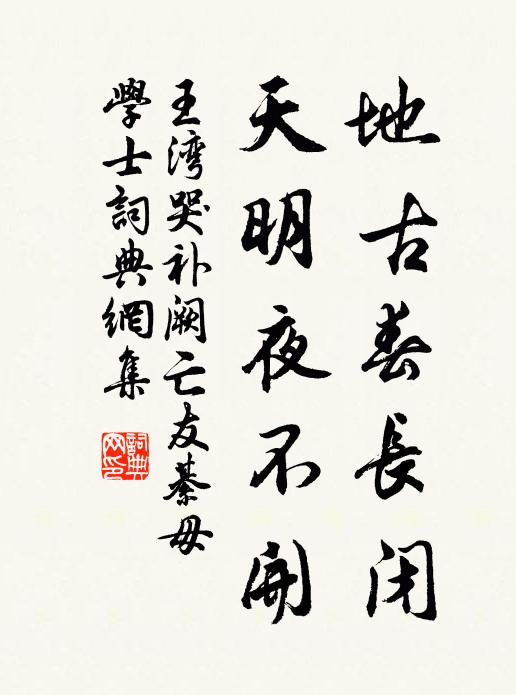 地古春長闭
天明夜不開
王湾哭补阙亡友綦毋
學士詞典網集
詞典网印